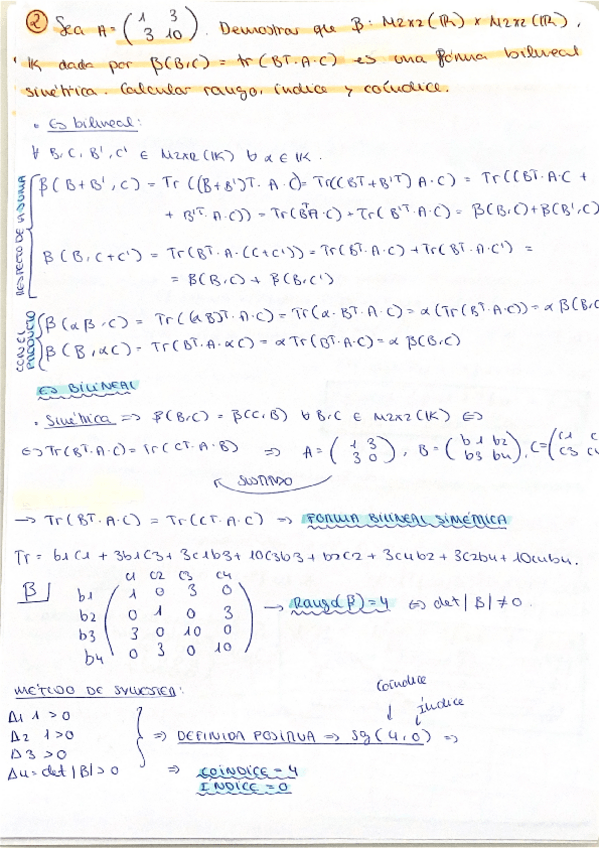 ② Sea A = (1 3 / 3 10). Demostrar que β: M2x2(IR) x M2x2(IR),
IK dada por β(B,C) = tr(BT.A.C) es una forma bilineal
simétrica. Calcular rango, índice y coíndice.
• Es bilineal:
∀ B, C, B', C' ∈ M2x2(IK) ∀ α ∈ IK.
RESPECTO DE SUMA
β(B+B', C) = Tr((B+B')T. A.C) = Tr((BT+B'T) A.C) = Tr((BT.A.C +
+ B'T.A.C)) = Tr(BTA.C) + Tr(B'T.A.C) = β(B,C) + β(B',C)
β(B,C+C') = Tr(BT.A.(C+C')) = Tr(BT.A.C) + Tr(BT.A.C') =
= β(B,C) + β(B,C')
CON EL PRODUCTO
β(αB,C) = Tr((αB)T.A.C) = Tr(α.BT.A.C) = α(Tr(BT.A.C)) = αβ(B,C
β(B,αC) = Tr(BT.A.αC) = αTr(BT.A.C) = αβ(B,C)
ES BILINEAL
• Simétrica => β(B,C) = β(C,B) ∀ B,C ∈ M2x2(IK) <=>
<=> Tr(BT.A.C) = Tr(CT.A.B) => A = (1 3 / 3 0), B = (b1 b2 / b3 b4), C = (c1 c / c3 c4
→ Tr(BT.A.C) = Tr(CT.A.C) => FORMA BILINEAL SIMÉTRICA
Tr = b1c1 + 3b1c3 + 3c1b3 + 10c3b3 + b2c2 + 3c4b2 + 3c2b4 + 10c4b4.
B
c1 c2 c3 c4
b1 1 0 3 0
b2 0 1 0 3 → Rango(β) = 4 <=> det|B| ≠ 0.
b3 3 0 10 0
b4 0 3 0 10
MÉTODO DE SYLVESTER:
coíndice
índice
Δ1 1 > 0
Δ2 1 > 0 => DEFINIDA POSITIVA => Sg(4,0) =>
Δ3 > 0
Δ4 = det|B| > 0 => COÍNDICE = 4
ÍNDICE = 0